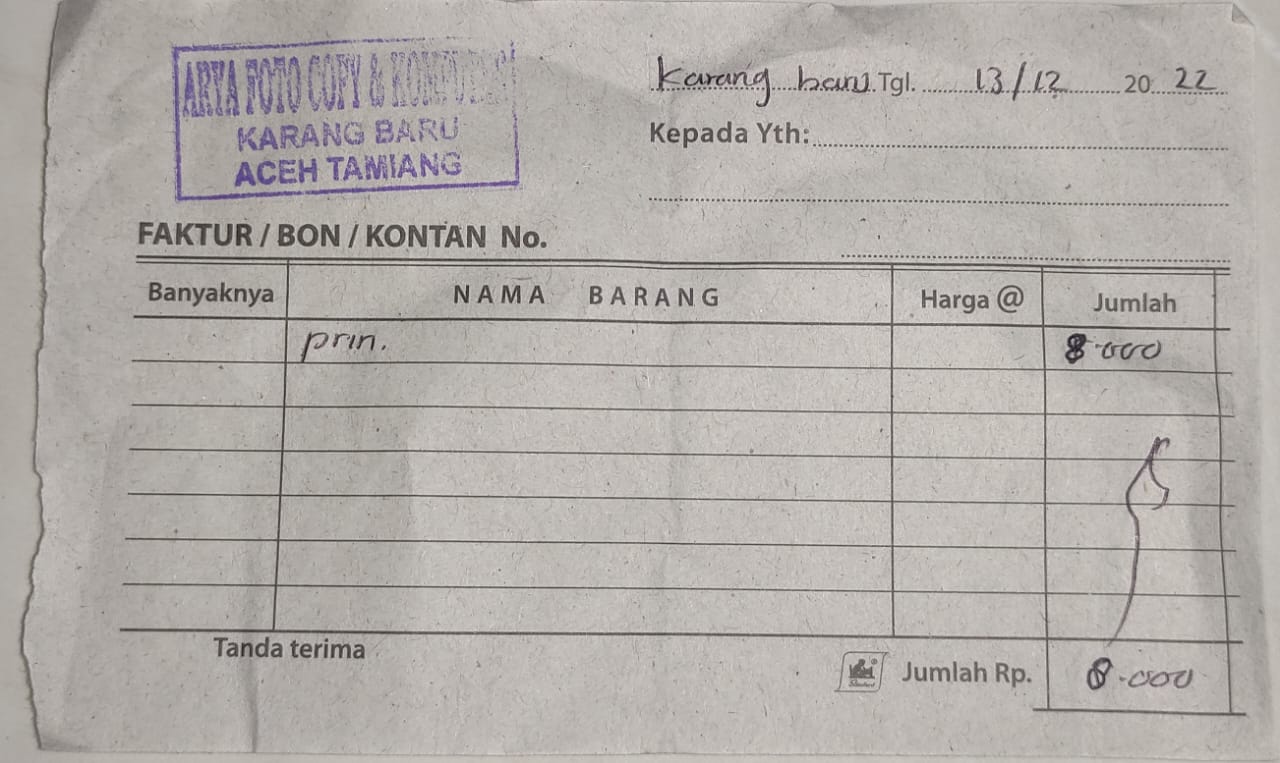 ARYA FOTO COPY & KOMPUTER
KARANG BARU
ACEH TAMIANG
Karang baru Tgl. 13/12 20 22
Kepada Yth:
FAKTUR / BON / KONTAN No.
Banyaknya NAMA BARANG Harga @ Jumlah
prin. 8.000
Tanda terima
Jumlah Rp. 8.000